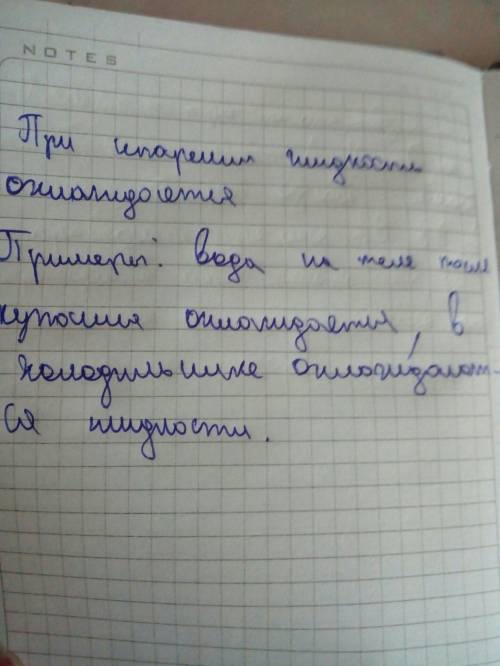 NOTES
При испарении жидкость
охлаждается
Примеры: вода на теле после
купания охлаждается, в
холодильнике охлаждают-
ся жидкости.